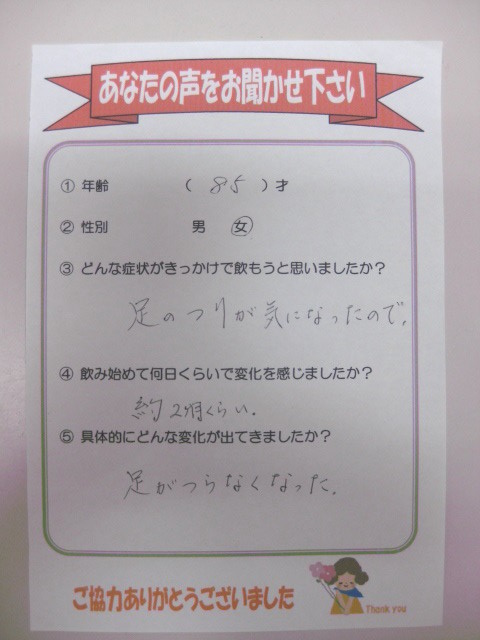 あなたの声をお聞かせ下さい
① 年齢 ( 85 ) 才
② 性別 男 女
③ どんな症状がきっかけで飲もうと思いましたか?
足のつりが気になったので。
④ 飲み始めて何日くらいで変化を感じましたか?
約2ヶ月くらい.
⑤ 具体的にどんな変化が出てきましたか?
足がつらなくなった.
ご協力ありがとうございました
Thank you